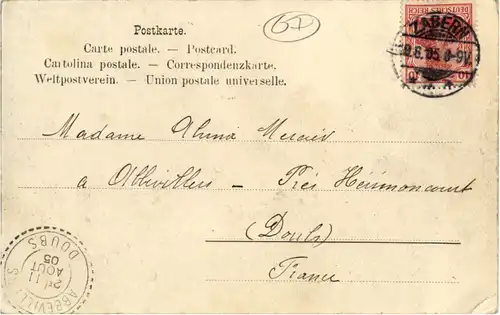 Postkarte.
Carte postale. — Postcard.
Cartolina postale. — Correspondenzkarte.
Weltpostverein. — Union postale universelle.
67
DEUTSCHES REICH
ZABERN
8.05.
10 10
Madame Alma Mercier
a Abbévillers — Près Hérimoncourt
(Doubs)
France
DOUBS
11
AOUT
05